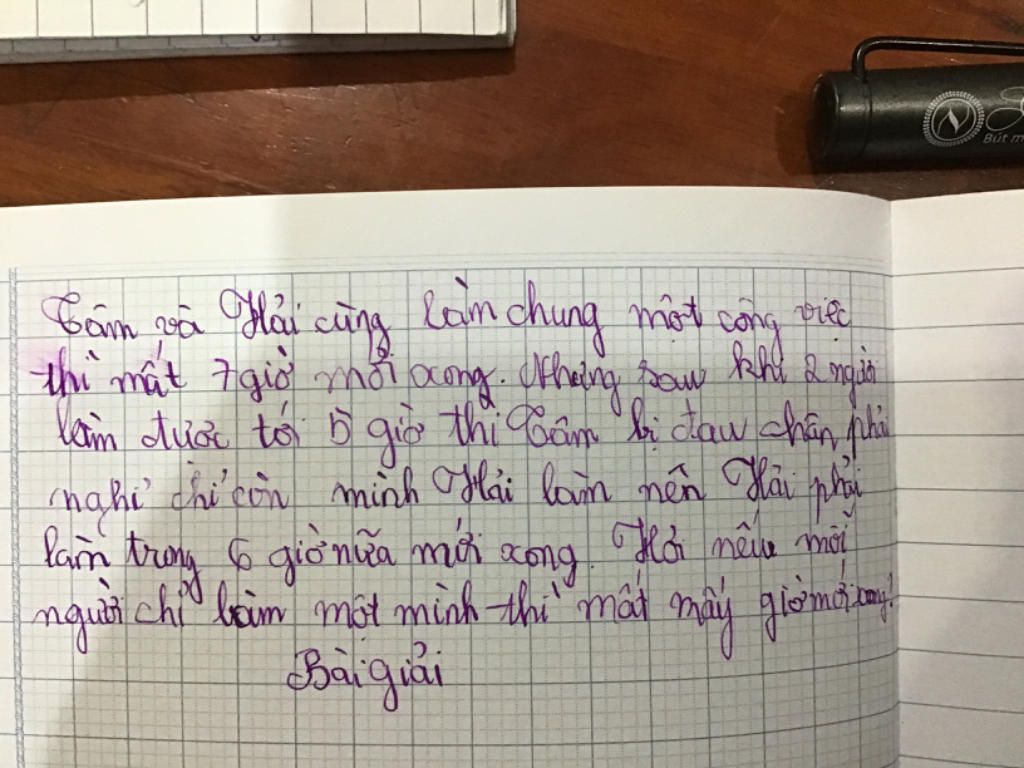 Bút m
Tâm và Hải cùng làm chung một công việc
thì mất 7 giờ mới xong. Nhưng sau khi 2 người
làm được tới 5 giờ thì Tâm bị đau chân phải
nghỉ chỉ còn mình Hải làm nên Hải phải
làm trong 6 giờ nữa mới xong. Hỏi nếu mỗi
người chỉ làm một mình thì mất mấy giờ mới xong?
Bài giải